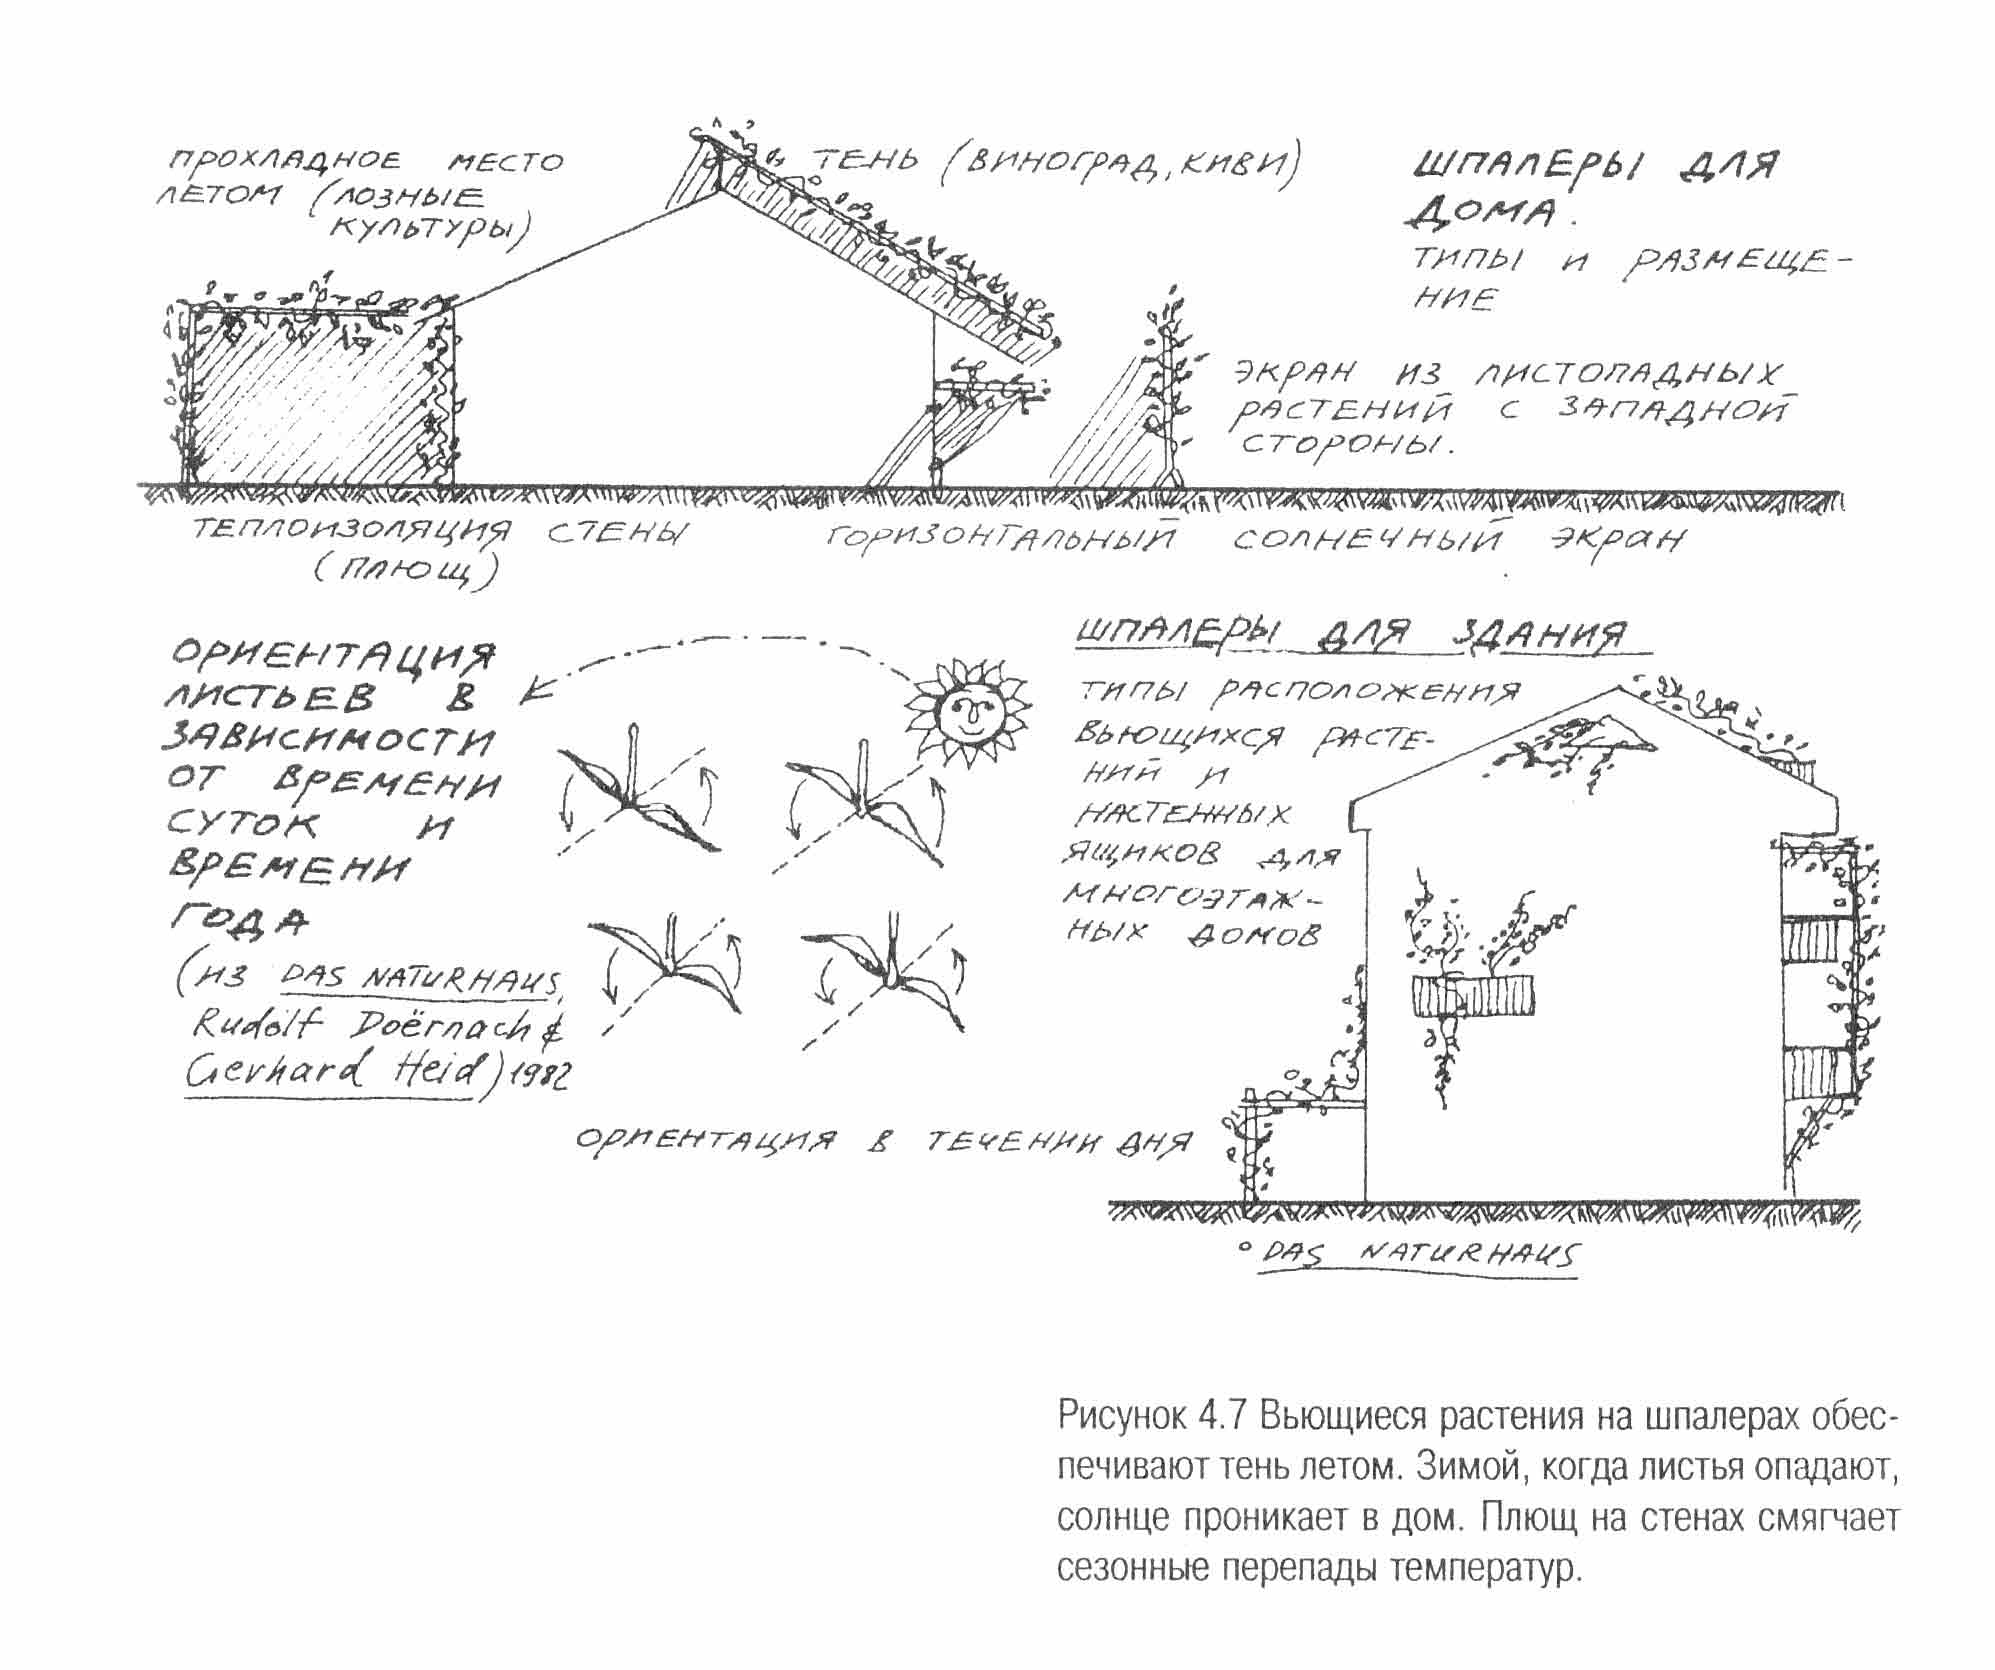 ПРОХЛАДНОЕ МЕСТО
ЛЕТОМ (ЛОЗНЫЕ
КУЛЬТУРЫ)
ТЕНЬ (ВИНОГРАД, КИВИ)
ШПАЛЕРЫ ДЛЯ
ДОМА.
ТИПЫ И РАЗМЕЩЕ-
НИЕ
ЭКРАН ИЗ ЛИСТОПАДНЫХ
РАСТЕНИЙ С ЗАПАДНОЙ
СТОРОНЫ.
ТЕПЛОИЗОЛЯЦИЯ СТЕНЫ
(ПЛЮЩ)
ГОРИЗОНТАЛЬНЫЙ СОЛНЕЧНЫЙ ЭКРАН
ОРИЕНТАЦИЯ
ЛИСТЬЕВ В
ЗАВИСИМОСТИ
ОТ ВРЕМЕНИ
СУТОК И
ВРЕМЕНИ
ГОДА
(ИЗ DAS NATURHAUS,
Rudolf Doërnach &
Gerhard Heid) 1982
ОРИЕНТАЦИЯ В ТЕЧЕНИИ ДНЯ
ШПАЛЕРЫ ДЛЯ ЗДАНИЯ
ТИПЫ РАСПОЛОЖЕНИЯ
ВЬЮЩИХСЯ РАСТЕ-
НИЙ И
НАСТЕННЫХ
ЯЩИКОВ ДЛЯ
МНОГОЭТАЖ-
НЫХ ДОМОВ
° DAS NATURHAUS
Рисунок 4.7 Вьющиеся растения на шпалерах обес-
печивают тень летом. Зимой, когда листья опадают,
солнце проникает в дом. Плющ на стенах смягчает
сезонные перепады температур.